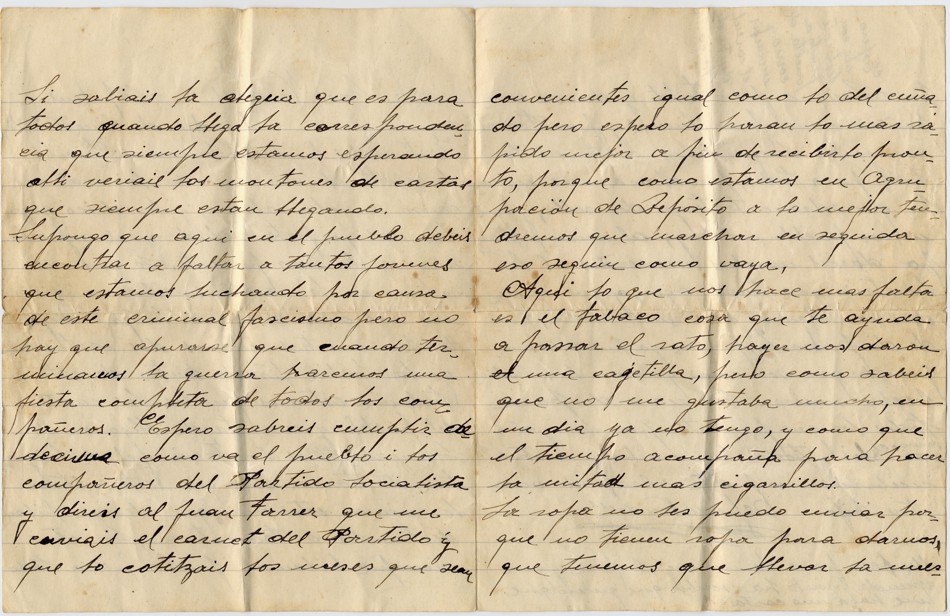 Si sabiais la alegria que es para
todos quando llega la corresponden-
cia que siempre estamos esperando
alli veriais los montones de cartas
que siempre estan llegando.
Supongo que aqui en el pueblo debeis
encontrar a faltar a tantos jovenes
que estamos luchando por causa
de este criminal fascismo pero no
hay que apurarse que cuando ter-
minamos la guerra haremos una
fiesta complita de todos los com-
pañeros. Espero sabreis cumplir
decirme como va el pueblo i los
compañeros del Partido Socialista
y direis al Juan Farrer que me
enviais el carnet del Partido y
que lo cotitzais los meses que sean
convenientes igual como lo del cuña-
do pero espero lo haran lo mas ra-
pido mejor a fin de recibirlo pron-
to, porque como estamos en Agru-
pación de Depósito a lo mejor ten-
dremos que marchar en seguida
eso seguin como vaya,
Aqui lo que nos hace mas falta
es el tabaco cosa que te ayuda
a passar el rato, hayer nos daron
una cagetilla, pero como sabeis
que no me gustaba mucho, en
un dia ya no tengo, y como que
el tiempo acompaña para hacer
la mitad mas cigarrillos.
La ropa no les puedo enviar por-
que no tienen ropa para darnos,
que tenemos que llevar la nues-